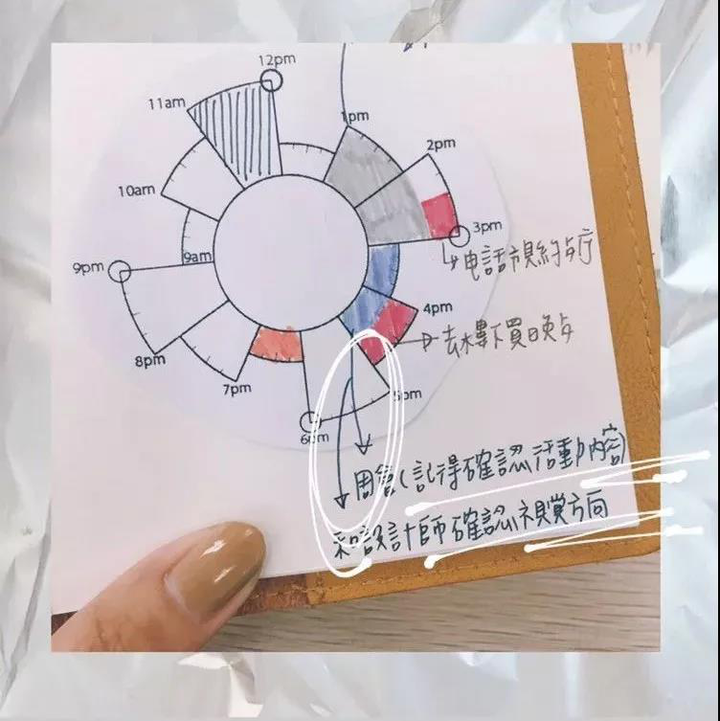 12pm
11am
1pm
2pm
10am
3pm
9am
9pm
4pm
8pm
5pm
7pm
6pm
去樓下買晚
周會(記得確認活動內容)
和設計師確認視覺方向